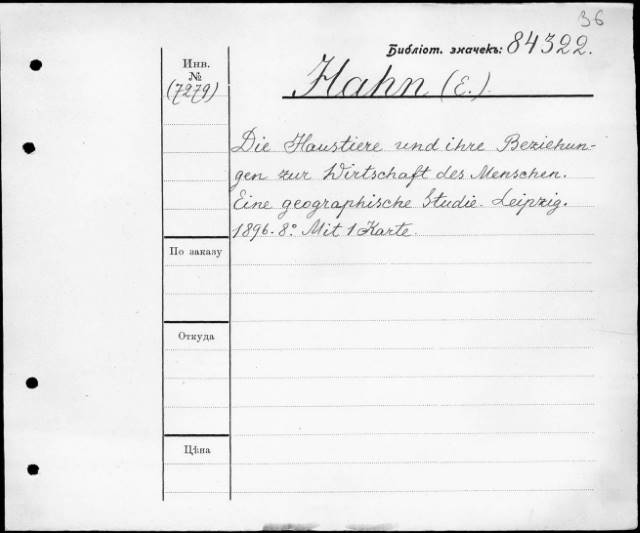 36
Библіот. значекъ: 84322.
Инв.
№
(7279)
Hahn (E.).
Die Haustiere und ihre Beziehun-
gen zur Wirtschaft des Menschen.
Eine geographische Studie. Leipzig.
1896. 8° Mit 1 Karte.
По заказу
Откуда
Цѣна